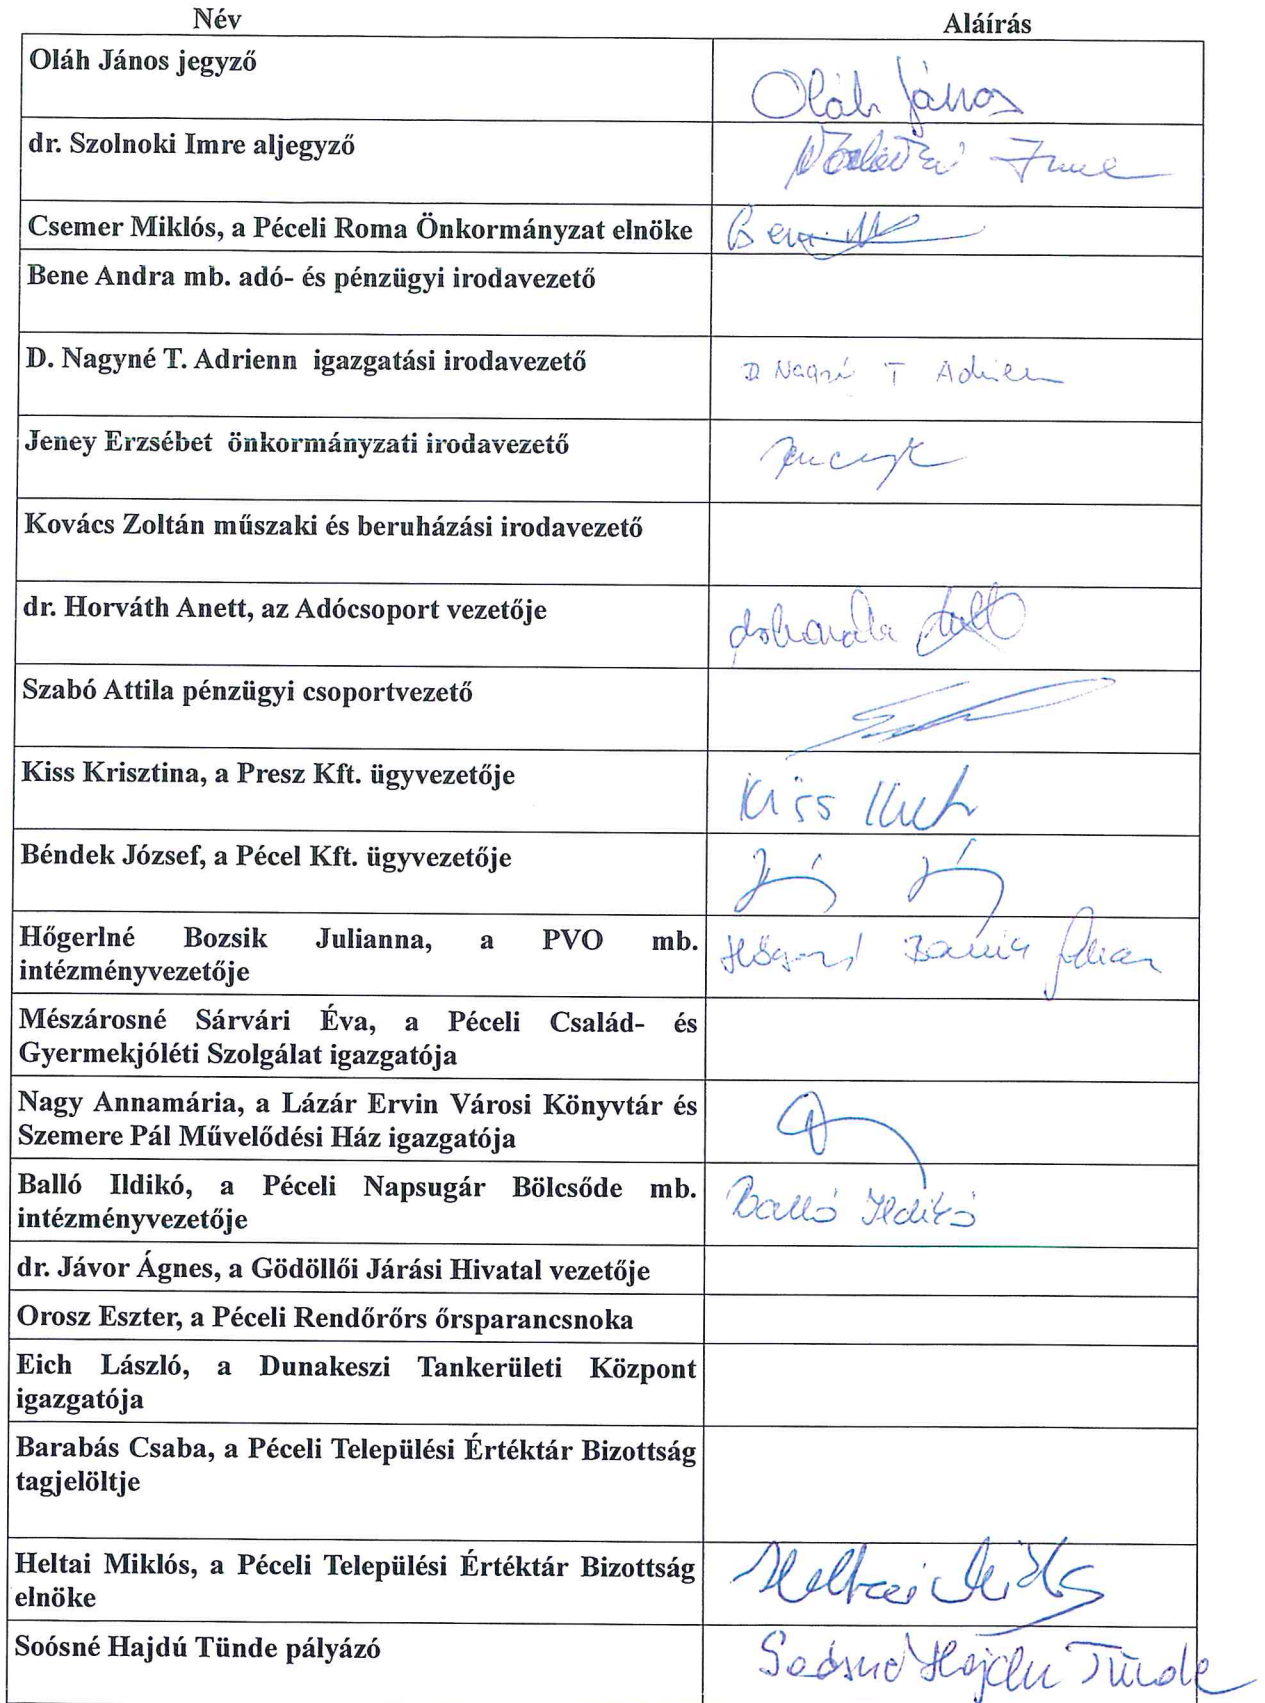 Név Aláírás
Oláh János jegyző Oláh János
dr. Szolnoki Imre aljegyző Imre
Csemer Miklós, a Péceli Roma Önkormányzat elnöke
Bene Andra mb. adó- és pénzügyi irodavezető
D. Nagyné T. Adrienn igazgatási irodavezető D Nagyné T Adrienn
Jeney Erzsébet önkormányzati irodavezető
Kovács Zoltán műszaki és beruházási irodavezető
dr. Horváth Anett, az Adócsoport vezetője
Szabó Attila pénzügyi csoportvezető
Kiss Krisztina, a Presz Kft. ügyvezetője Kiss
Béndek József, a Pécel Kft. ügyvezetője
Hőgerlné Bozsik Julianna, a PVO mb.
intézményvezetője
Mészárosné Sárvári Éva, a Péceli Család- és
Gyermekjóléti Szolgálat igazgatója
Nagy Annamária, a Lázár Ervin Városi Könyvtár és
Szemere Pál Művelődési Ház igazgatója
Balló Ildikó, a Péceli Napsugár Bölcsőde mb.
intézményvezetője Balló Ildikó
dr. Jávor Ágnes, a Gödöllői Járási Hivatal vezetője
Orosz Eszter, a Péceli Rendőrőrs őrsparancsnoka
Eich László, a Dunakeszi Tankerületi Központ
igazgatója
Barabás Csaba, a Péceli Települési Értéktár Bizottság
tagjelöltje
Heltai Miklós, a Péceli Települési Értéktár Bizottság
elnöke Heltai Miklós
Soósné Hajdú Tünde pályázó Soósné Hajdu Tünde